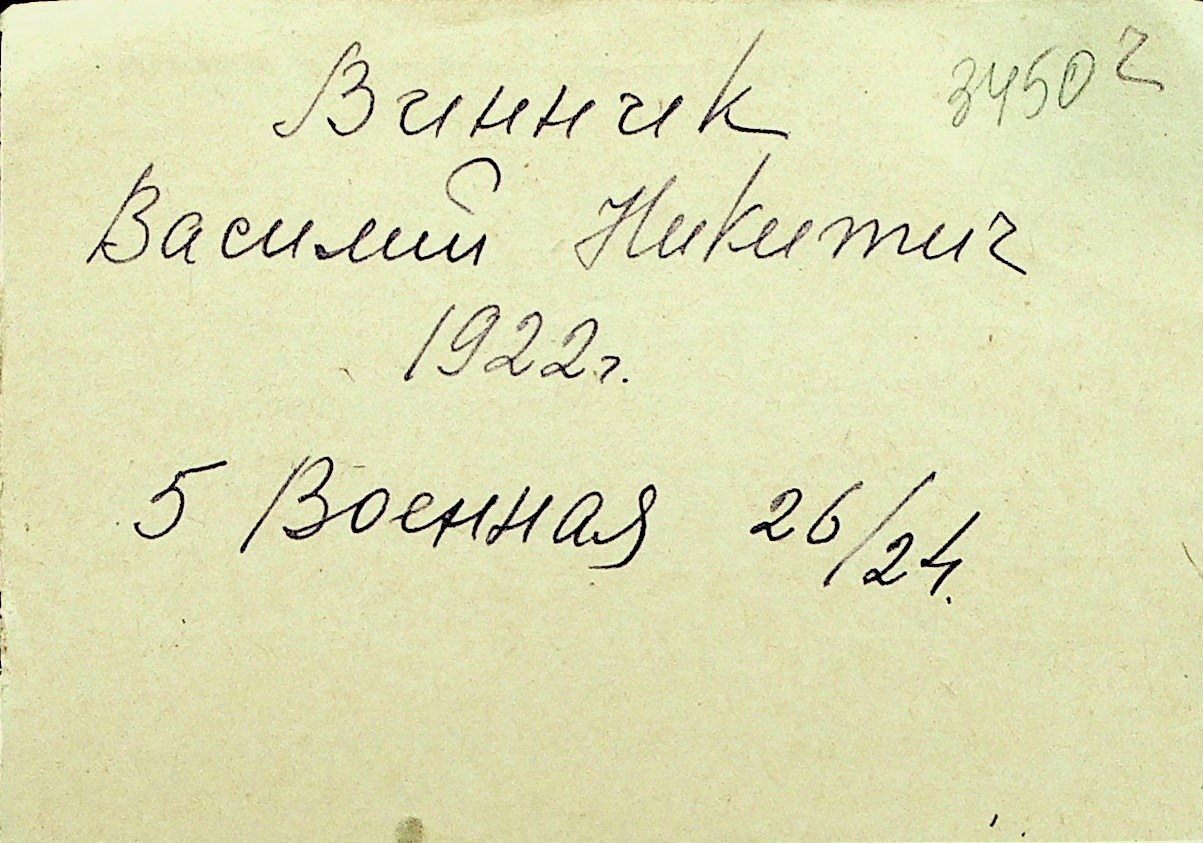 Винник 3450 г
Василий Никитич
1922г.
5 Военная 26/24.